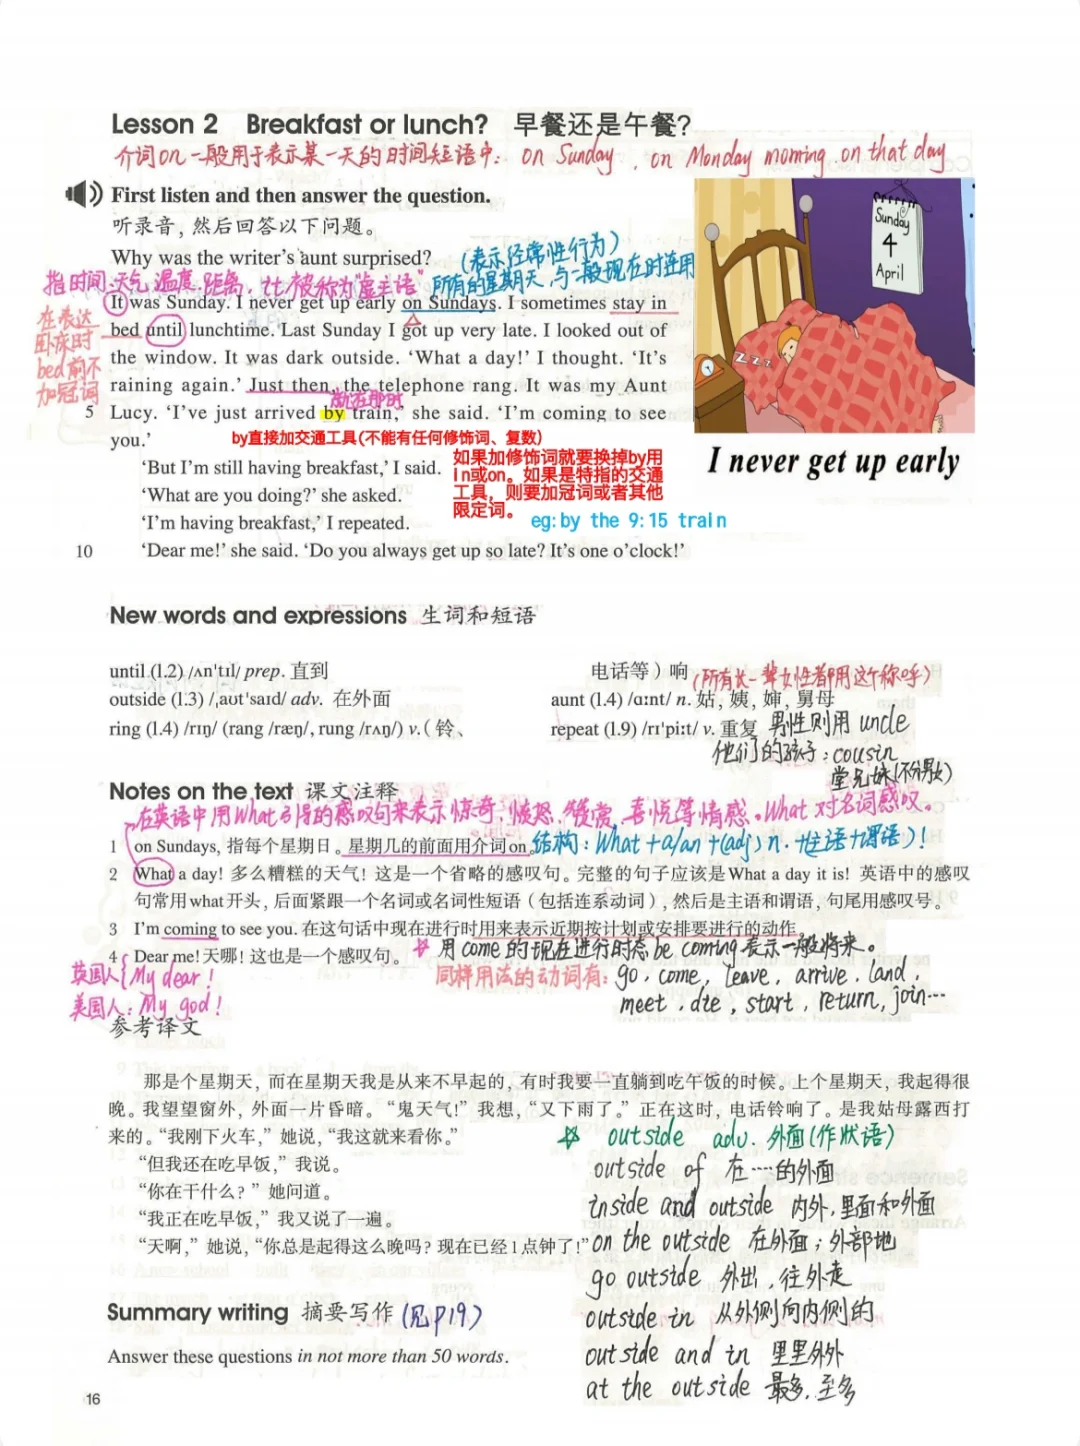 Lesson 2 Breakfast or lunch? 早餐还是午餐?
介词on一般用于表示某一天的时间短语中: on Sunday, on Monday morning, on that day
First listen and then answer the question.
听录音，然后回答以下问题。
Why was the writer's aunt surprised?
(表示经常性行为)
所有的星期天,与一般现在时连用
指时间.天气.温度.距离.
被称为"虚主语"
It was Sunday. I never get up early on Sundays. I sometimes stay in
bed until lunchtime. Last Sunday I got up very late. I looked out of
the window. It was dark outside. 'What a day!' I thought. 'It's
raining again.' Just then, the telephone rang. It was my Aunt
5 Lucy. 'I've just arrived by train,' she said. 'I'm coming to see
you.'
在表达
卧床时
bed前不
加冠词
by直接加交通工具(不能有任何修饰词、复数)
'But I'm still having breakfast,' I said.
'What are you doing?' she asked.
'I'm having breakfast,' I repeated.
10 'Dear me!' she said. 'Do you always get up so late? It's one o'clock!'
如果加修饰词就要换掉by用
in或on。如果是特指的交通
工具，则要加冠词或者其他
限定词。
eg:by the 9:15 train
Sunday
4
April
zzz
I never get up early
New words and expressions 生词和短语
until (l.2) /ʌn'tɪl/ prep. 直到
outside (l.3) /ˌaʊt'saɪd/ adv. 在外面
ring (l.4) /rɪŋ/ (rang /ræŋ/, rung /rʌŋ/) v.（铃、
电话等）响
(所有长一辈女性都用这个称呼)
aunt (l.4) /ɑːnt/ n. 姑，姨，婶，舅母
repeat (l.9) /rɪ'piːt/ v. 重复
男性则用 uncle
他们的孩子: cousin
堂兄妹(不分男女)
Notes on the text 课文注释
在英语中用What引导的感叹句来表示惊奇,愤怒,赞赏,喜悦等情感。What 对名词感叹。
1 on Sundays, 指每个星期日。星期几的前面用介词on。
结构: What + a/an + (adj) n. +(主语+谓语)!
2 What a day! 多么糟糕的天气！这是一个省略的感叹句。完整的句子应该是What a day it is! 英语中的感叹
句常用what开头，后面紧跟一个名词或名词性短语（包括连系动词），然后是主语和谓语，句尾用感叹号。
3 I'm coming to see you. 在这句话中现在进行时用来表示近期按计划或安排要进行的动作。
4 Dear me! 天哪！这也是一个感叹句。
用come的现在进行时态 be coming 表示一般将来。
同样用法的动词有: go, come, leave, arrive, land,
meet, die, start, return, join…
英国人 My dear!
美国人: My god!
参考译文
那是个星期天，而在星期天我是从来不早起的，有时我要一直躺到吃午饭的时候。上个星期天，我起得很
晚。我望望窗外，外面一片昏暗。“鬼天气！”我想，“又下雨了。”正在这时，电话铃响了。是我姑母露西打
来的。“我刚下火车，”她说，“我这就来看你。”
“但我还在吃早饭，”我说。
“你在干什么？”她问道。
“我正在吃早饭，”我又说了一遍。
“天啊，”她说，“你总是起得这么晚吗？现在已经1点钟了！”
outside adv. 外面(作状语)
outside of 在…的外面
inside and outside 内外,里面和外面
on the outside 在外面；外部地
go outside 外出,往外走
outside in 从外侧向内侧的
outside and in 里里外外
at the outside 最多,至多
Summary writing 摘要写作 (见P19)
Answer these questions in not more than 50 words.
16